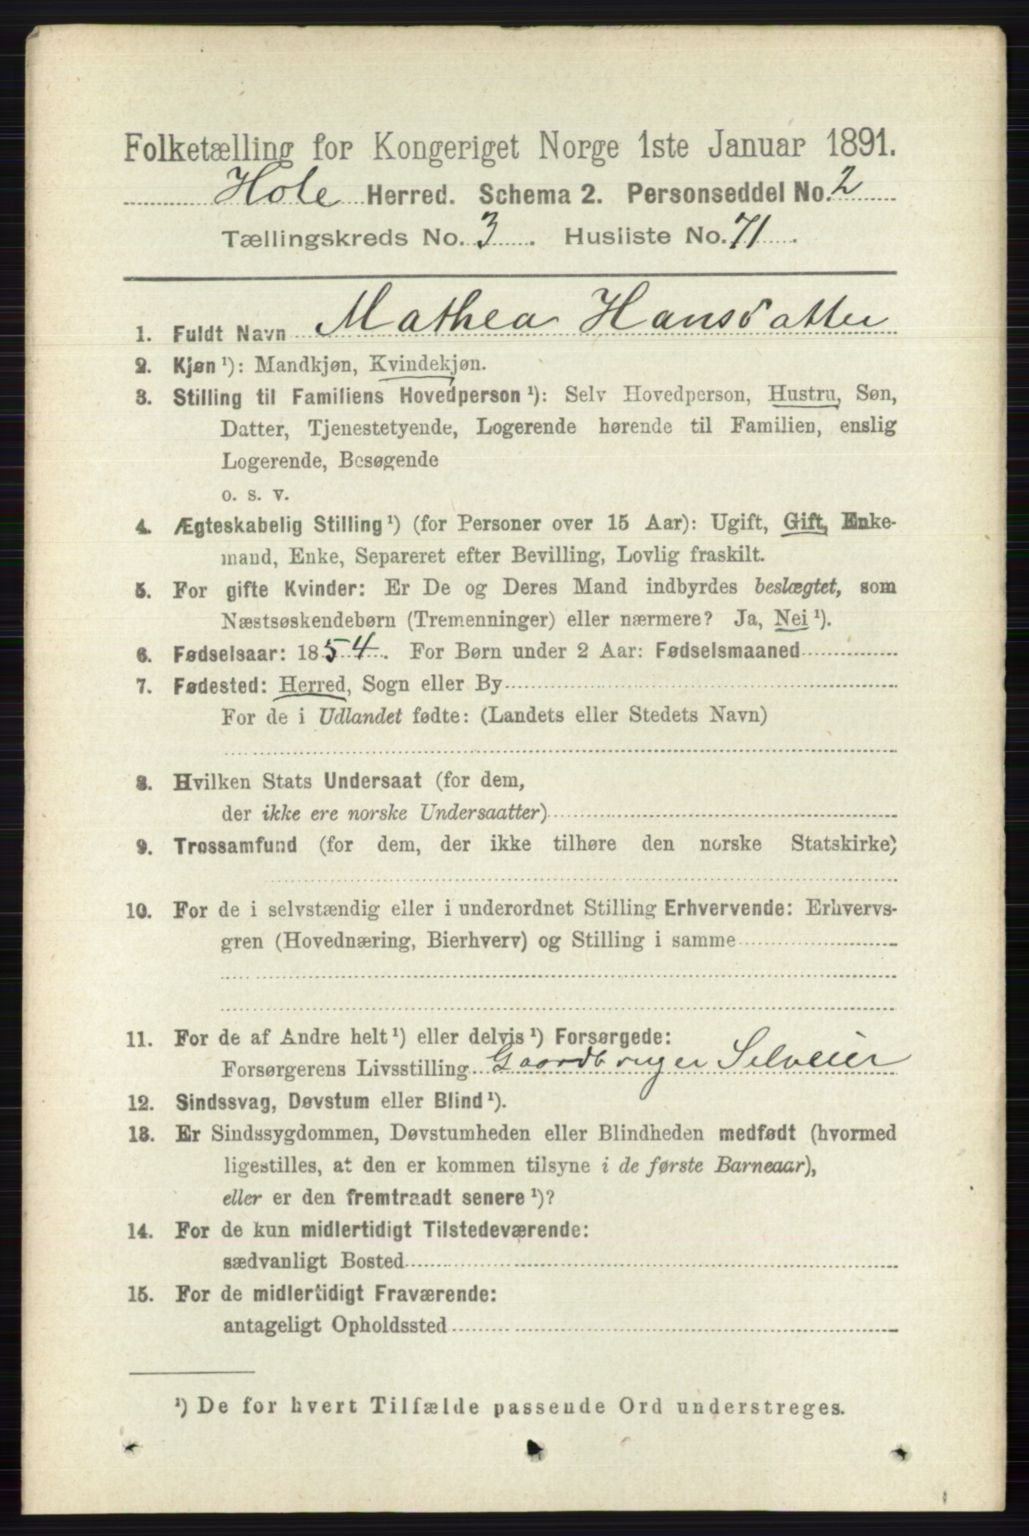 Folketælling for Kongeriget Norge 1ste Januar 1891.
Hole Herred. Schema 2. Personseddel No. 2
Tællingskreds No. 3. Husliste No. 71.
1. Fuldt Navn Mathea Hansdatter
2. Kjøn ¹): Mandkjøn, Kvindekjøn.
3. Stilling til Familiens Hovedperson ¹): Selv Hovedperson, Hustru, Søn,
Datter, Tjenestetyende, Logerende hørende til Familien, enslig
Logerende, Besøgende
o. s. v.
4. Ægteskabelig Stilling ¹) (for Personer over 15 Aar): Ugift, Gift, Enke-
mand, Enke, Separeret efter Bevilling, Lovlig fraskilt.
5. For gifte Kvinder: Er De og Deres Mand indbyrdes beslægtet, som
Næstsøskendebørn (Tremenninger) eller nærmere? Ja, Nei ¹).
6. Fødselsaar: 1854. For Børn under 2 Aar: Fødselsmaaned
7. Fødested: Herred, Sogn eller By
For de i Udlandet fødte: (Landets eller Stedets Navn)
8. Hvilken Stats Undersaat (for dem,
der ikke ere norske Undersaatter)
9. Trossamfund (for dem, der ikke tilhøre den norske Statskirke)
10. For de i selvstændig eller i underordnet Stilling Erhvervende: Erhvervs-
gren (Hovednæring, Bierhverv) og Stilling i samme
11. For de af Andre helt ¹) eller delvis ¹) Forsørgede:
Forsørgerens Livsstilling Gaardbruger Selveier
12. Sindssvag, Døvstum eller Blind ¹).
13. Er Sindssygdommen, Døvstumheden eller Blindheden medfødt (hvormed
ligestilles, at den er kommen tilsyne i de første Barneaar),
eller er den fremtraadt senere ¹)?
14. For de kun midlertidigt Tilstedeværende:
sædvanligt Bosted
15. For de midlertidigt Fraværende:
antageligt Opholdssted
¹) De for hvert Tilfælde passende Ord understreges.